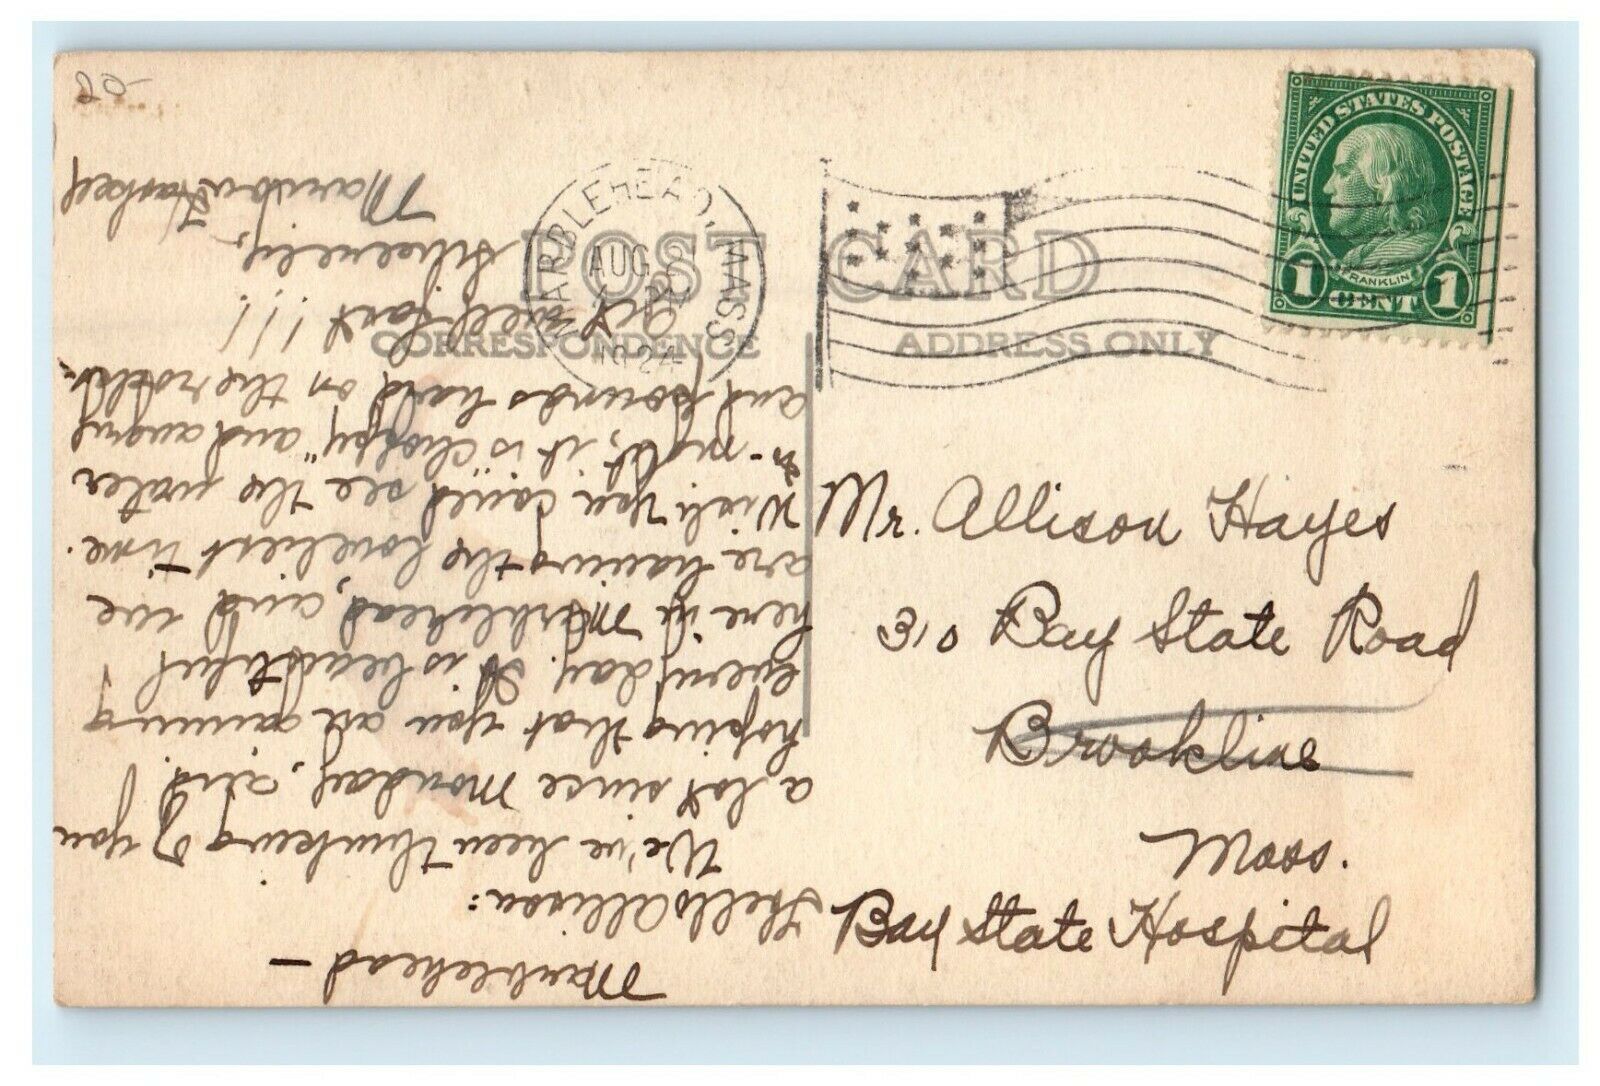 20-
POST CARD
CORRESPONDENCE
ADDRESS ONLY
MARBLEHEAD, MASS.
AUG
1924
UNITED STATES POSTAGE
FRANKLIN
1 CENT 1
Mr. Allison Hayes
310 Bay State Road
Brookline
Mass.
Bay State Hospital
Marblehead –
Hello Allison:
We've been thinking of you
a lot since Monday, and
hoping that you are gaining
every day. It is beautiful
here in Marblehead, and we
are having the loveliest time.
Wish you could see the water
to-night, it is "choppy" and angry
and pounds hard on the rocks.
Get well fast !!!
Sincerely,
Marion